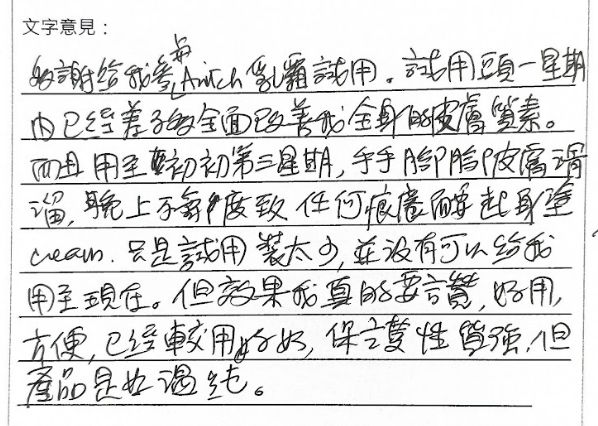 文字意見：
多謝給我參與Anitch乳霜試用。試用頭一星期
內已經差不多全面改善我全身的皮膚質素。
而且用至初初第三星期,手手腳腳皮膚滑
溜,晚上不會 度致任何痕癢而要起身塗
cream. 只是試用裝太少,並沒有可以給我
用至現在。但效果我真的要讚,好用,
方便,已經較用 好好,保護性質強,但
產品是 溫純。